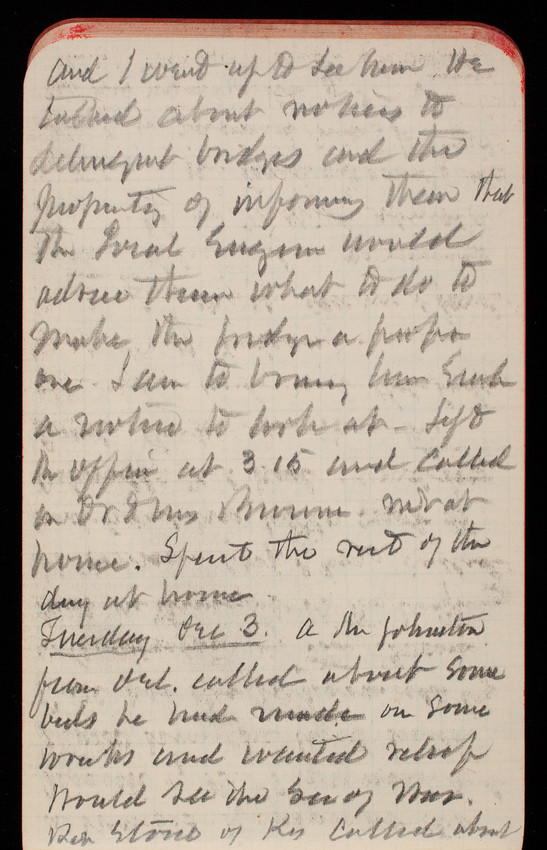 and I went up to see him He
talked about notices to
delinquent bridges and the
propriety of informing them that
the Local Engineer would
advise them what to do to
make the bridge a proper
one. I am to bring him such
a notice to look at - Left
the office at 3.15 and called
on Dr & Mrs not at
home. Spent the rest of the
day at home
Tuesday Dec 3. A Mr Johnston
from Del. called about some
bids he had made on some
works and wanted relief
Would see the Sec of War.
Rep Stone of Ky called about